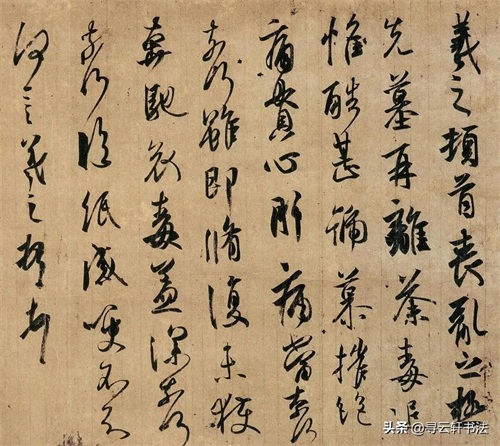 羲之頓首喪亂之極
先墓再離荼毒追
惟酷甚號慕摧絶
痛貫心肝痛當奈何
奈何雖即脩復未獲
奔馳哀毒益深奈何
奈何臨紙感哽不知
何言羲之頓首
头条 @寻云轩书法